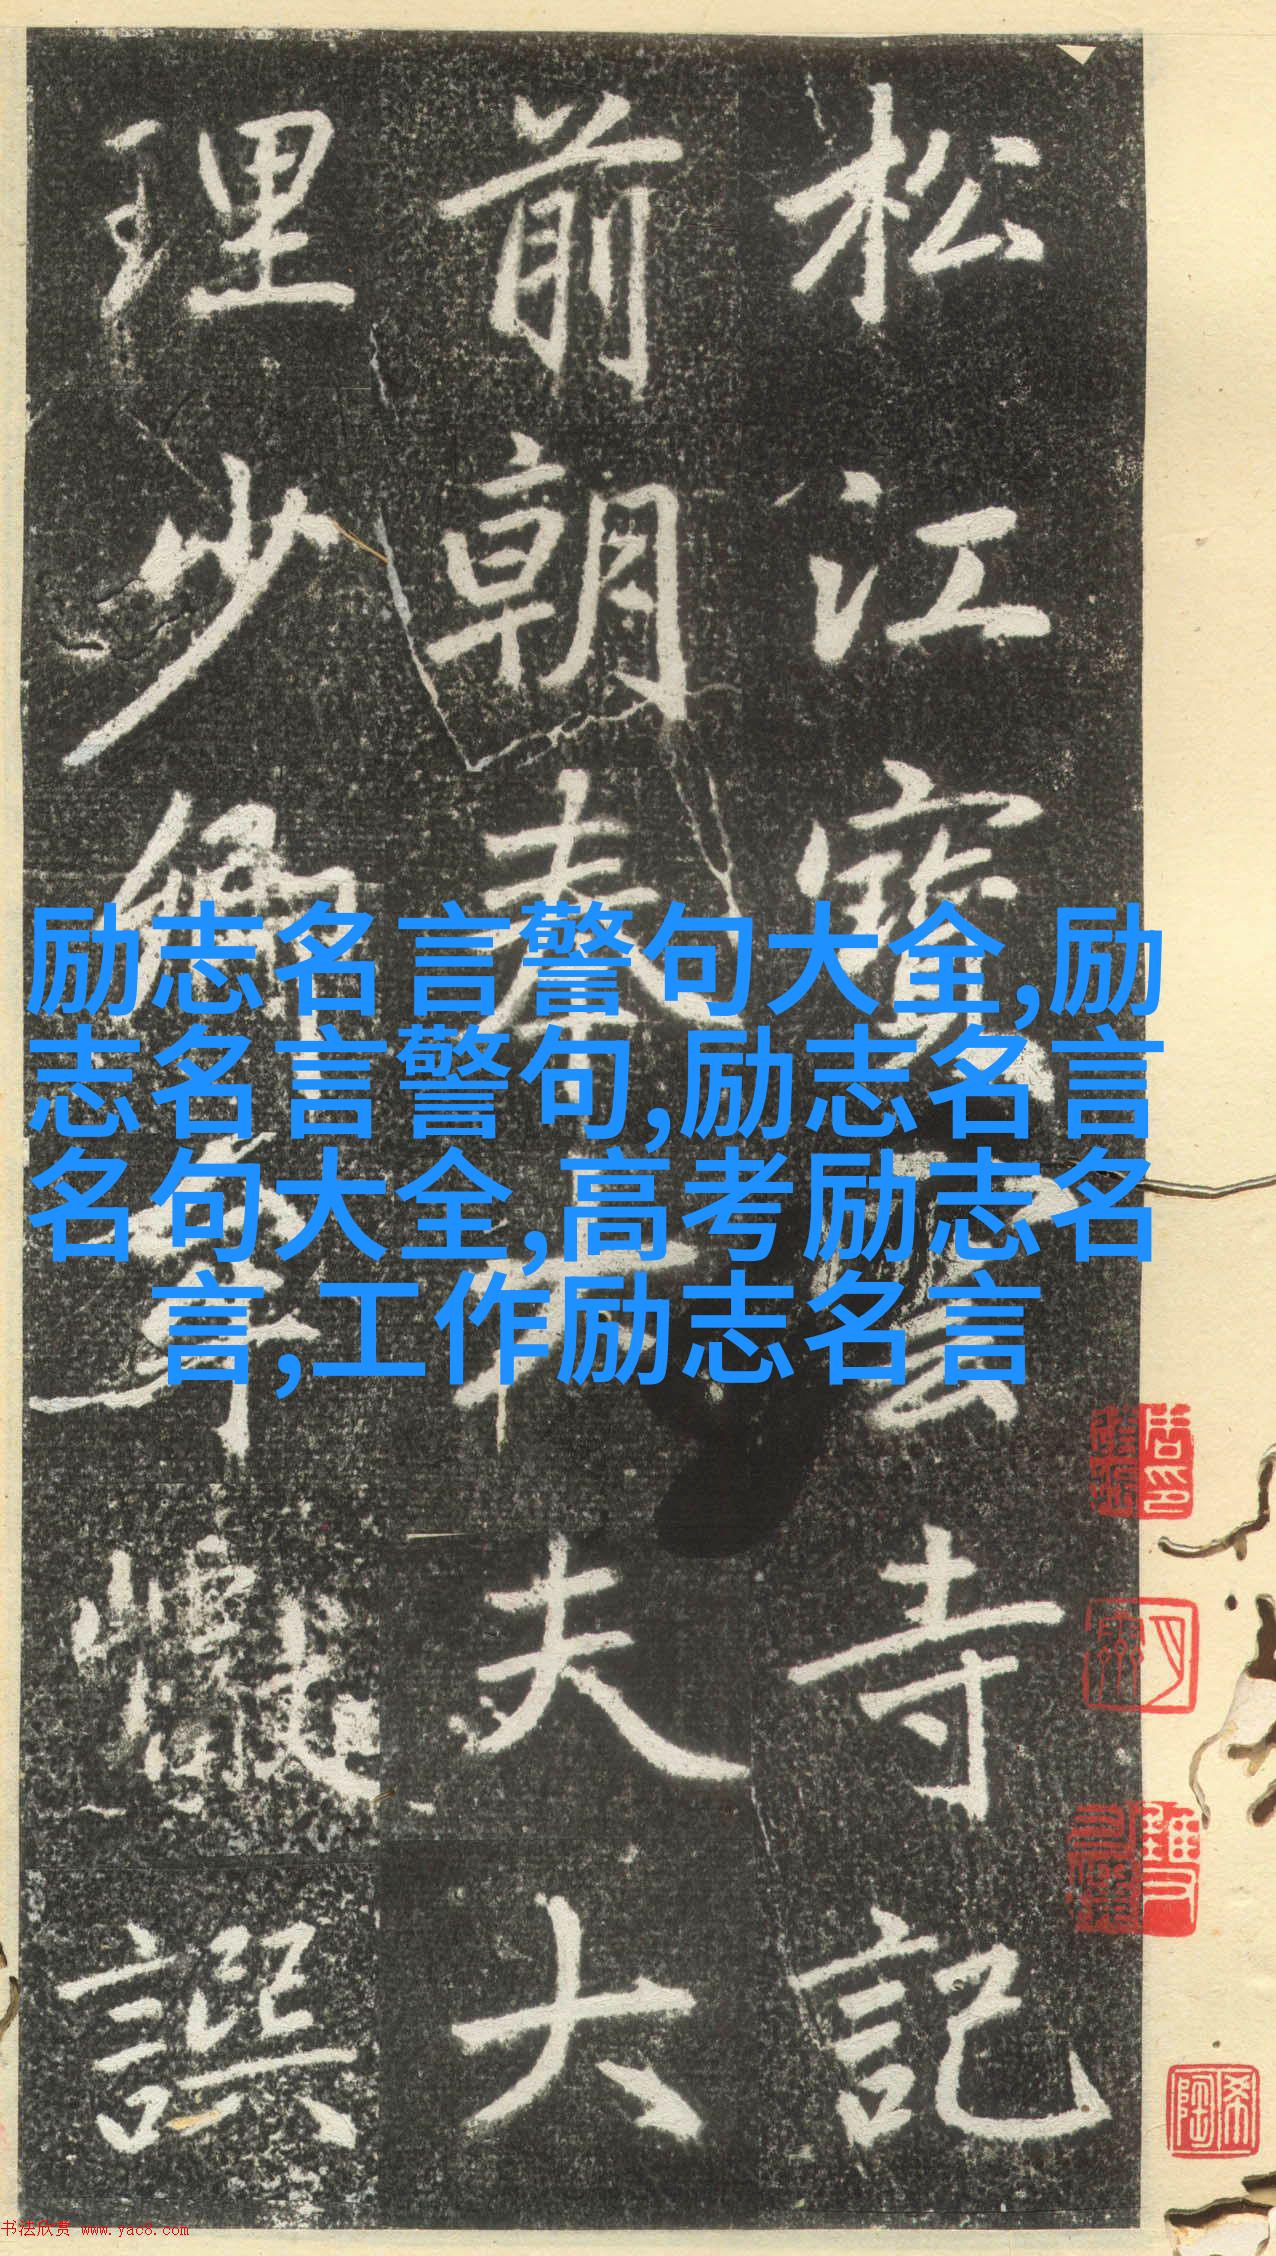 松江寳雲寺記
前朝奉大夫大
理少卿牟巘譔
励志名言警句大全,励
志名言警句,励志名言
名句大全,高考励志名
言,工作励志名言
希陶
书法欣赏 www.yac8.com